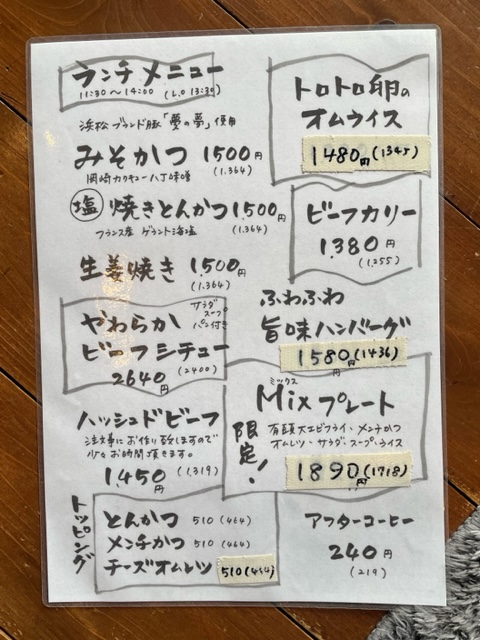 ランチメニュー
11:30～14:00 (L.O 13:30)
浜松ブランド豚「夢の夢」使用
みそかつ 1500円
(1.364)
岡崎カクキュー八丁味噌
塩 焼きとんかつ 1,500円
(1.364)
フランス産 ゲランド海塩
生姜焼き 1,500円
(1.364)
やわらか
ビーフシチュー
サラダ
スープ
パン付き
2640円 (2400)
ハッシュドビーフ
注文事にお作り致しますので
少々お時間頂きます。
1450円 (1,319)
トッピング
とんかつ 510 (464)
メンチかつ 510 (464)
チーズオムレツ 510 (464)
トロトロ卵の
オムライス
1480円 (1345)
ビーフカリー
1.380円
(1.255)
ふわふわ
旨味ハンバーグ
1580円 (1436)
ミックス
Mixプレート
限定!
有頭大エビフライ・メンチかつ
オムレツ・サラダ・スープ・ライス
1890円 (1718)
アフターコーヒー
240円
(219)